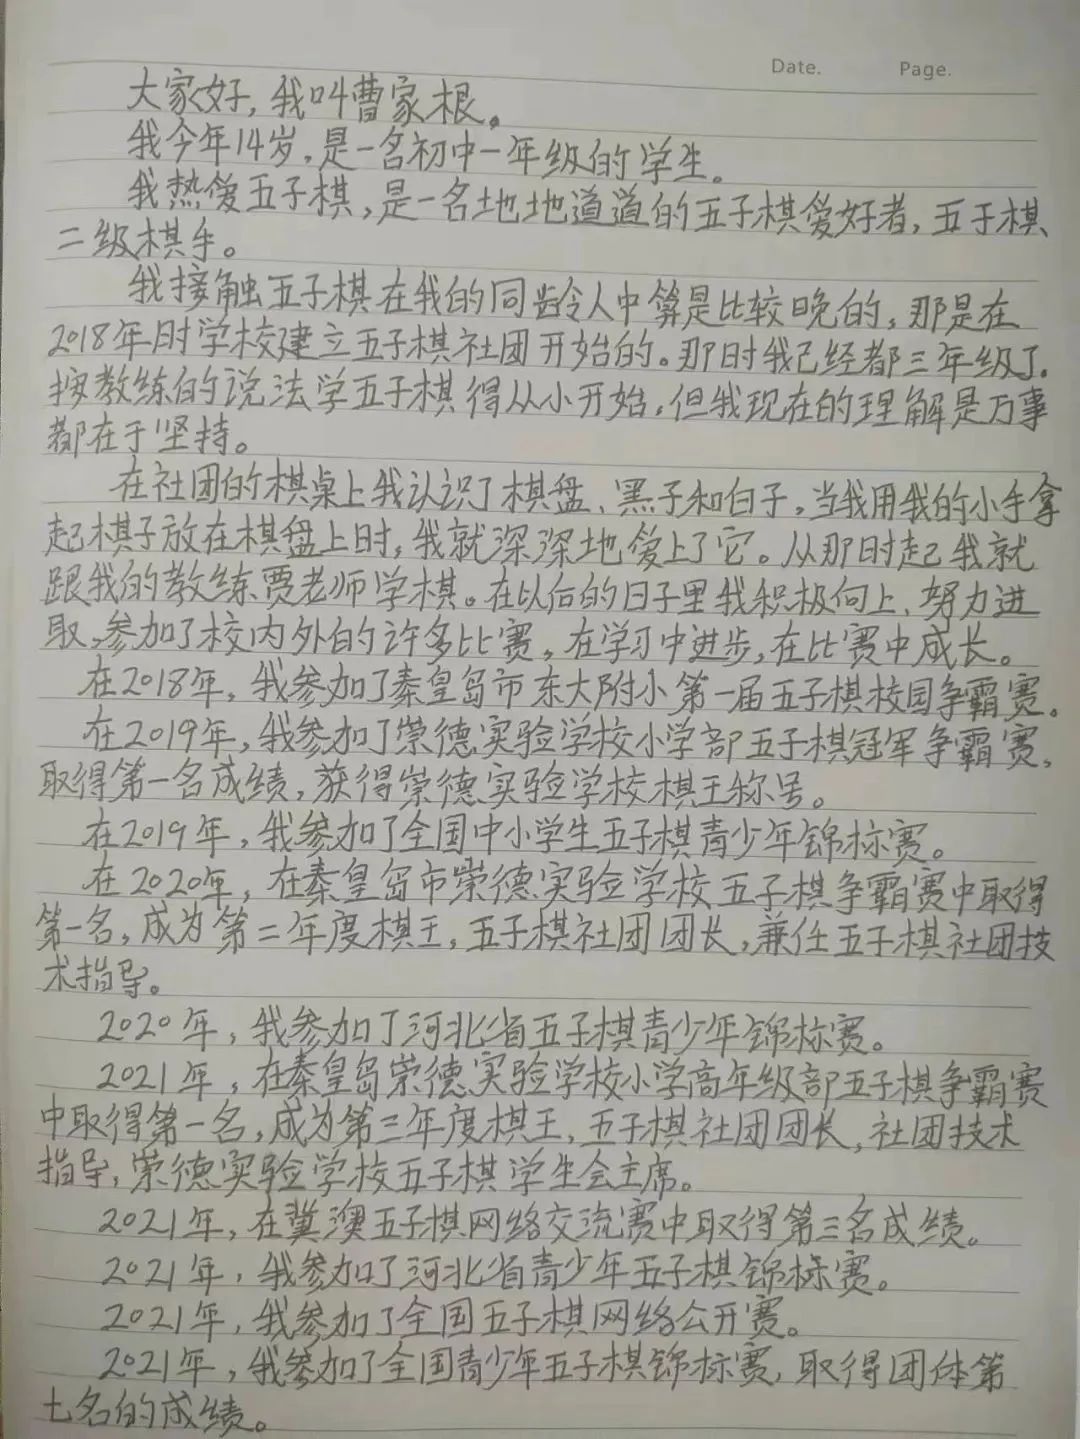 Date. Page.
大家好，我叫曹家根。
我今年14岁，是一名初中一年级的学生。
我热爱五子棋，是一名地地道道的五子棋爱好者，五子棋
二级棋手。
我接触五子棋在我的同龄人中算是比较晚的，那是在
2018年时学校建立五子棋社团开始的。那时我已经都三年级了.
按教练的说法学五子棋得从小开始，但我现在的理解是万事
都在于坚持。
在社团的棋桌上我认识了棋盘、黑子和白子，当我用我的小手拿
起棋子放在棋盘上时，我就深深地爱上了它。从那时起我就
跟我的教练贾老师学棋。在以后的日子里我积极向上、努力进
取，参加了校内外的许多比赛，在学习中进步，在比赛中成长。
在2018年，我参加了秦皇岛市东大附小第一届五子棋校园争霸赛。
在2019年，我参加了崇德实验学校小学部五子棋冠军争霸赛，
取得第一名成绩，获得崇德实验学校棋王称号。
在2019年，我参加了全国中小学生五子棋青少年锦标赛。
在2020年，在秦皇岛市崇德实验学校五子棋争霸赛中取得
第一名，成为第二年度棋王，五子棋社团团长，兼任五子棋社团技
术指导。
2020年，我参加了河北省五子棋青少年锦标赛。
2021年，在秦皇岛崇德实验学校小学高年级部五子棋争霸赛
中取得第一名，成为第三年度棋王，五子棋社团团长，社团技术
指导，崇德实验学校五子棋学生会主席。
2021年，在冀澳五子棋网络交流赛中取得第三名成绩。
2021年，我参加了河北省青少年五子棋锦标赛。
2021年，我参加了全国五子棋网络公开赛。
2021年，我参加了全国青少年五子棋锦标赛，取得团体第
七名的成绩。